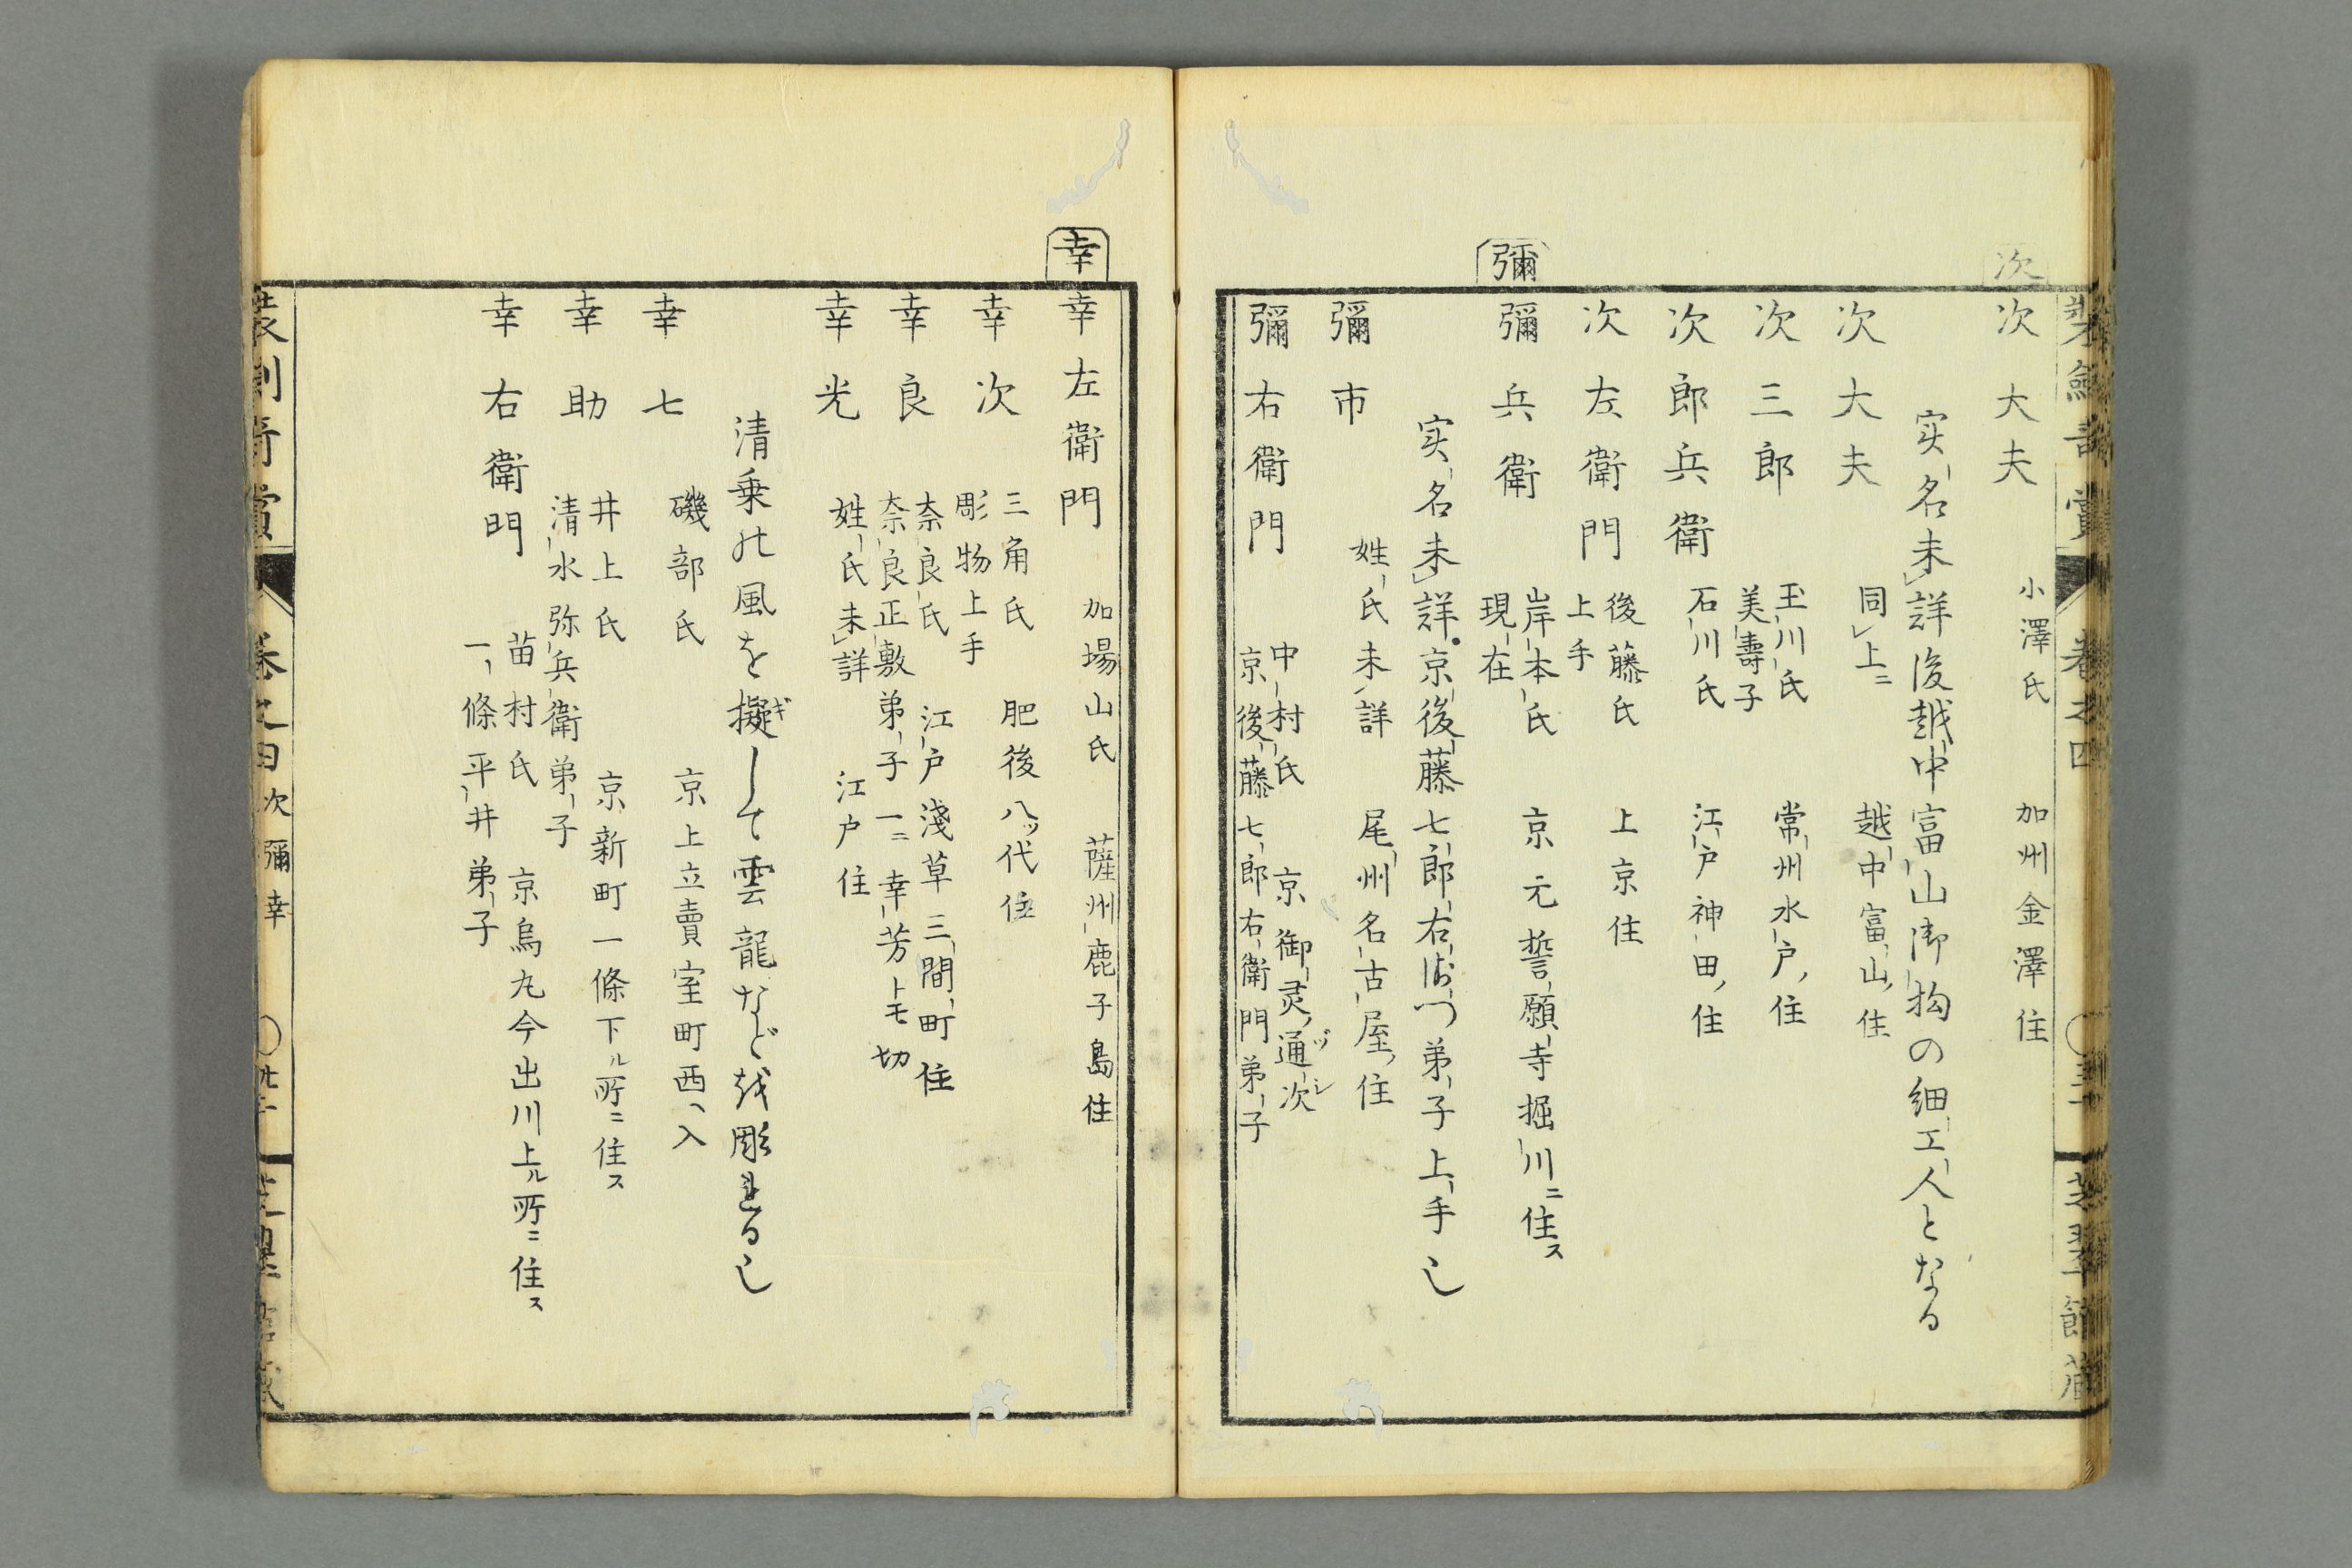 次
次大夫 小澤氏 加州金澤住
実名未詳後越中富山御抱の細工人となる
次大夫 同上ニ 越中富山住
次三郎 玉川氏 美壽子 常州水戸住
次郎兵衛 石川氏 江戸神田住
次左衛門 後藤氏 上手 上京住
彌
彌兵衛 岸本氏 現在 京元誓願寺掘川ニ住ス
実名未詳京後藤七郎右衛門弟子上手也
彌市 姓氏未詳 尾州名古屋住
彌右衛門 中村氏 京御灵通ヅシ次
京後藤七郎右衛門弟子
幸
幸左衛門 加場山氏 薩州鹿子島住
幸次 三角氏 彫物上手 肥後八ツ代住
幸良 奈良氏 江戸淺草三間町住
奈良正敷弟子一ニ幸芳トモ切
幸光 姓氏未詳 江戸住
清乗の風を擬ギして雲龍などを彫れる也
幸七 磯部氏 京上立賣室町西へ入
幸助 井上氏 京新町一條下ル所ニ住ス
清水弥兵衛弟子
幸右衛門 苗村氏 京烏丸今出川上ル所ニ住ス
一條平井弟子
卷之四 次 彌 幸